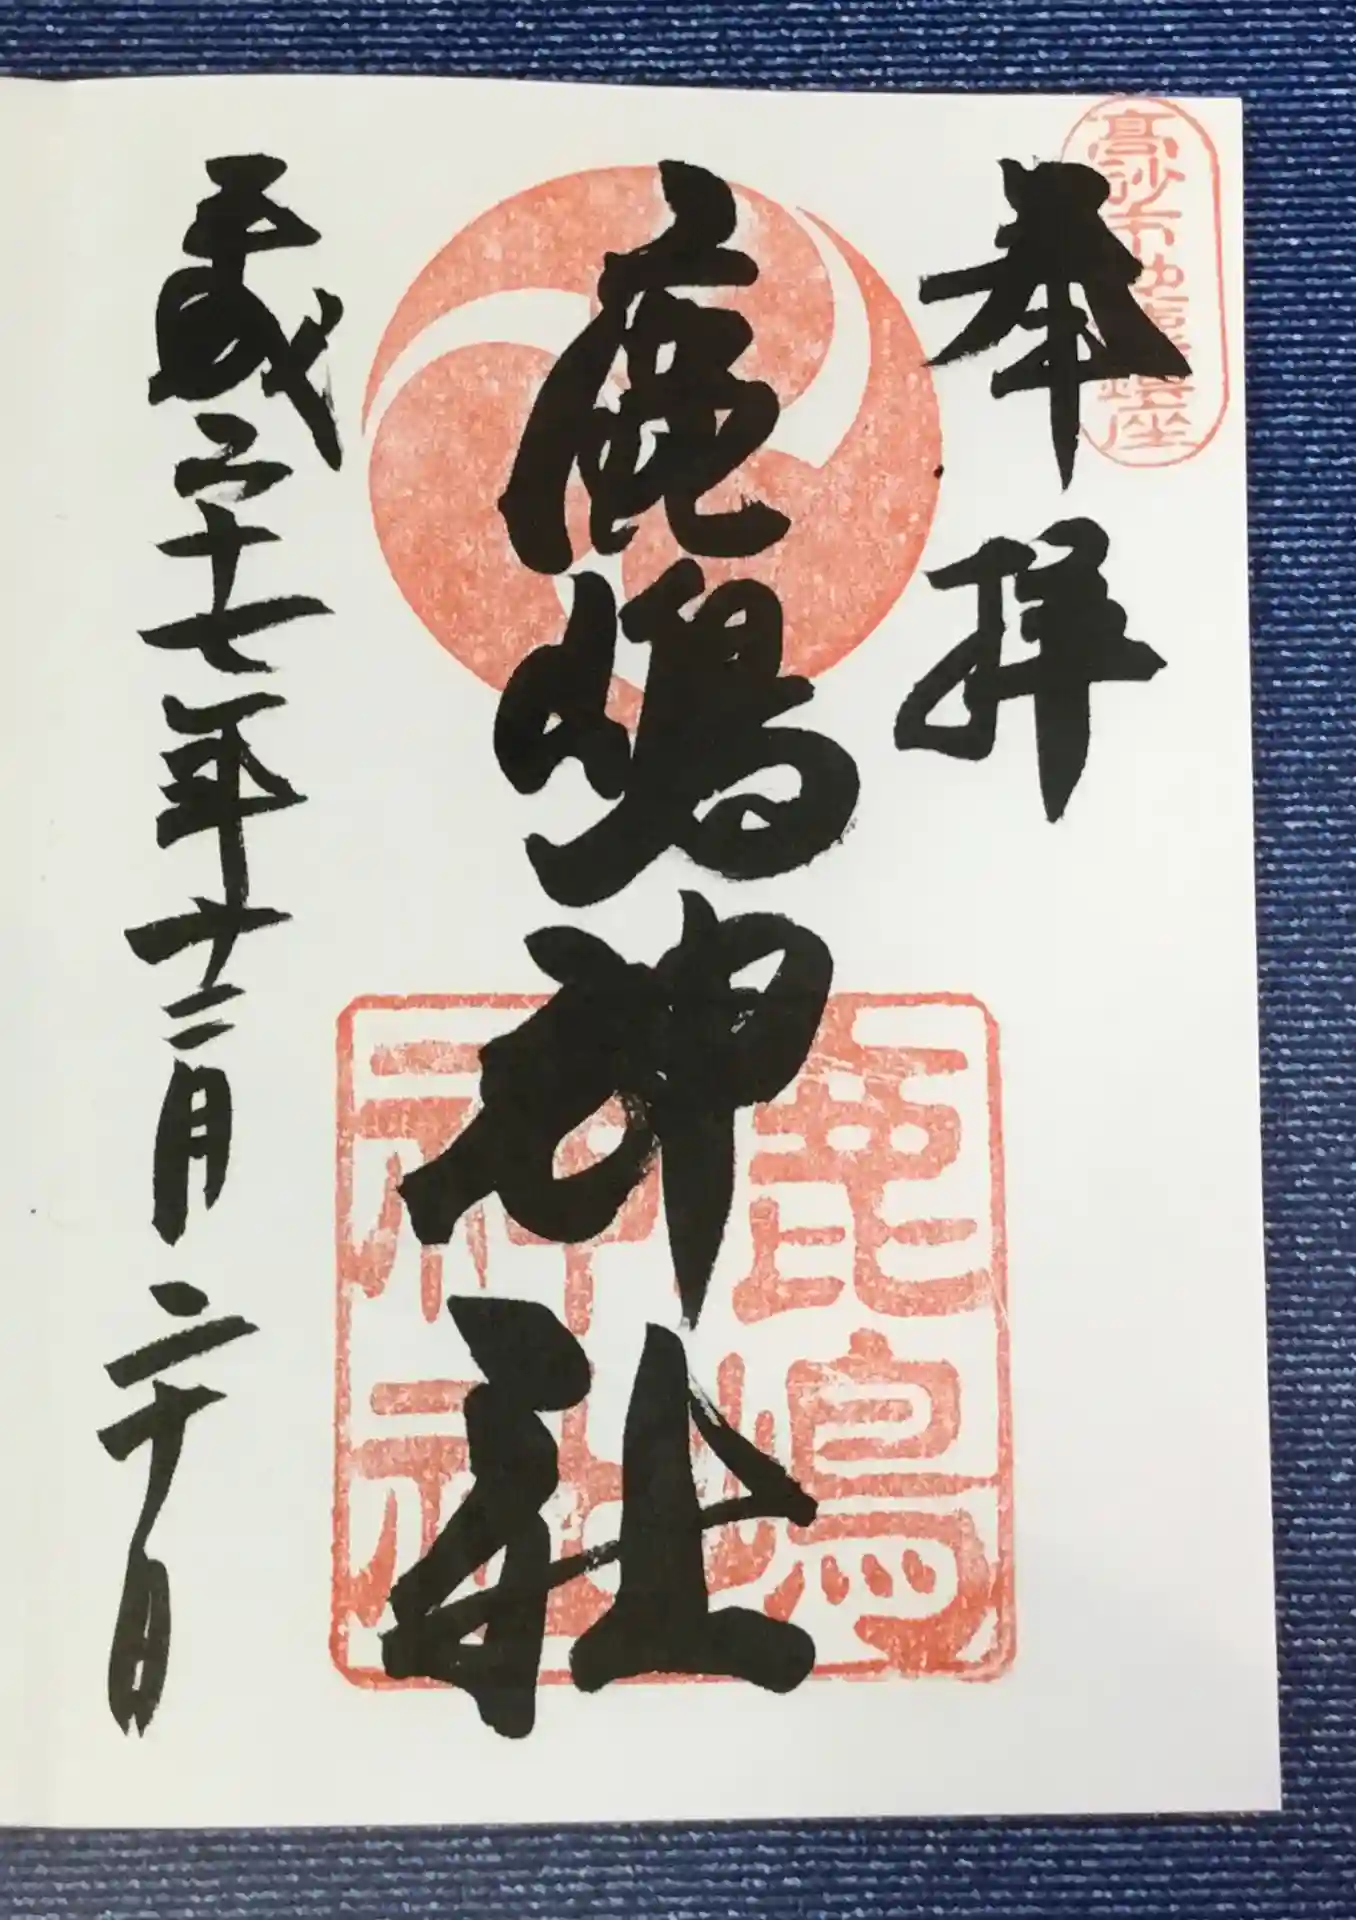 高砂市地徳鎮座
奉拝
鹿嶋神社
鹿嶋
神社
平成二十七年十二月二十日